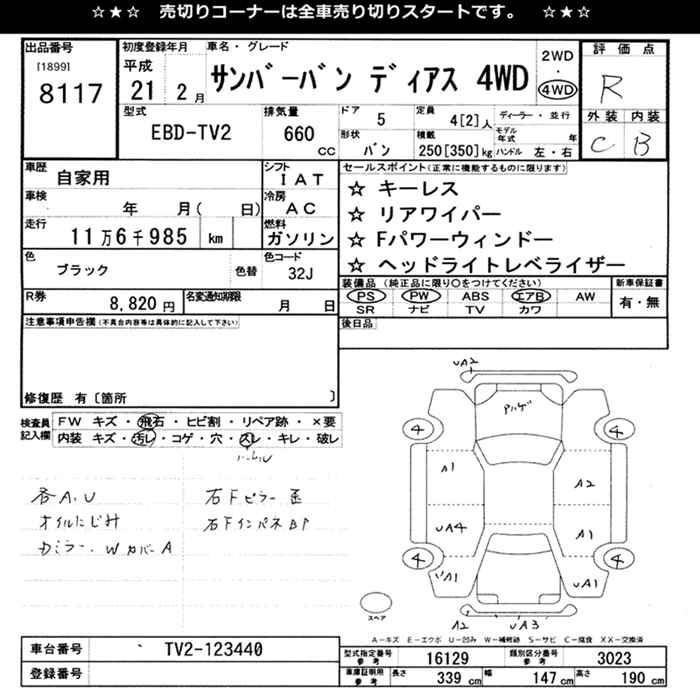 ☆★☆ 売切りコーナーは全車売り切りスタートです。 ☆★☆
出品番号
[1899]
8117
初度登録年月
平成
21 2月
車名・グレード
サンバーバン ディアス 4WD
2WD
・
4WD
評価点
R
外装 内装
C B
型式
EBD-TV2
排気量
660
cc
ドア
5
形状
バン
定員
4[2]人
積載
250[350]kg
ディーラー・並行
モデル年式 年
ハンドル 左・右
車歴
自家用
シフト
IAT
車検
年 月( 日)
冷房
AC
走行
11万6千985 km
燃料
ガソリン
色
ブラック
色替
色コード
32J
R券
8,820円
名変通知期限
月 日
セールスポイント(正常に機能するものに限ります)
☆ キーレス
☆ リアワイパー
☆ Fパワーウィンドー
☆ ヘッドライトレベライザー
装備品 (純正品に限り○をつけてください)
PS PW ABS エアB AW
SR ナビ TV カワ
新車保証書
有・無
後日品
注意事項申告欄(不具合内容等は具体的に記入して下さい)
修復歴 有〔箇所 〕
検査員
記入欄
FW キズ・飛石・ヒビ割・リペア跡・×要
内装 キズ・汚レ・コゲ・穴・スレ・キレ・破レ
各A.U
オイルにじみ
右Fピラー
右Fインパネ
UA2
4
4
A1
A2
UA4
A1
4
4
A1
UA1
A2
UA3
スペア
A−キズ E−エクボ U−凹み W−補修跡 S−サビ C−腐食 XX−交換済
車台番号
TV2-123440
登録番号
型式指定番号
参考
16129
類別区分番号
参考
3023
車庫証明用
参考
長さ
339 cm
幅
147 cm
高さ
190 cm